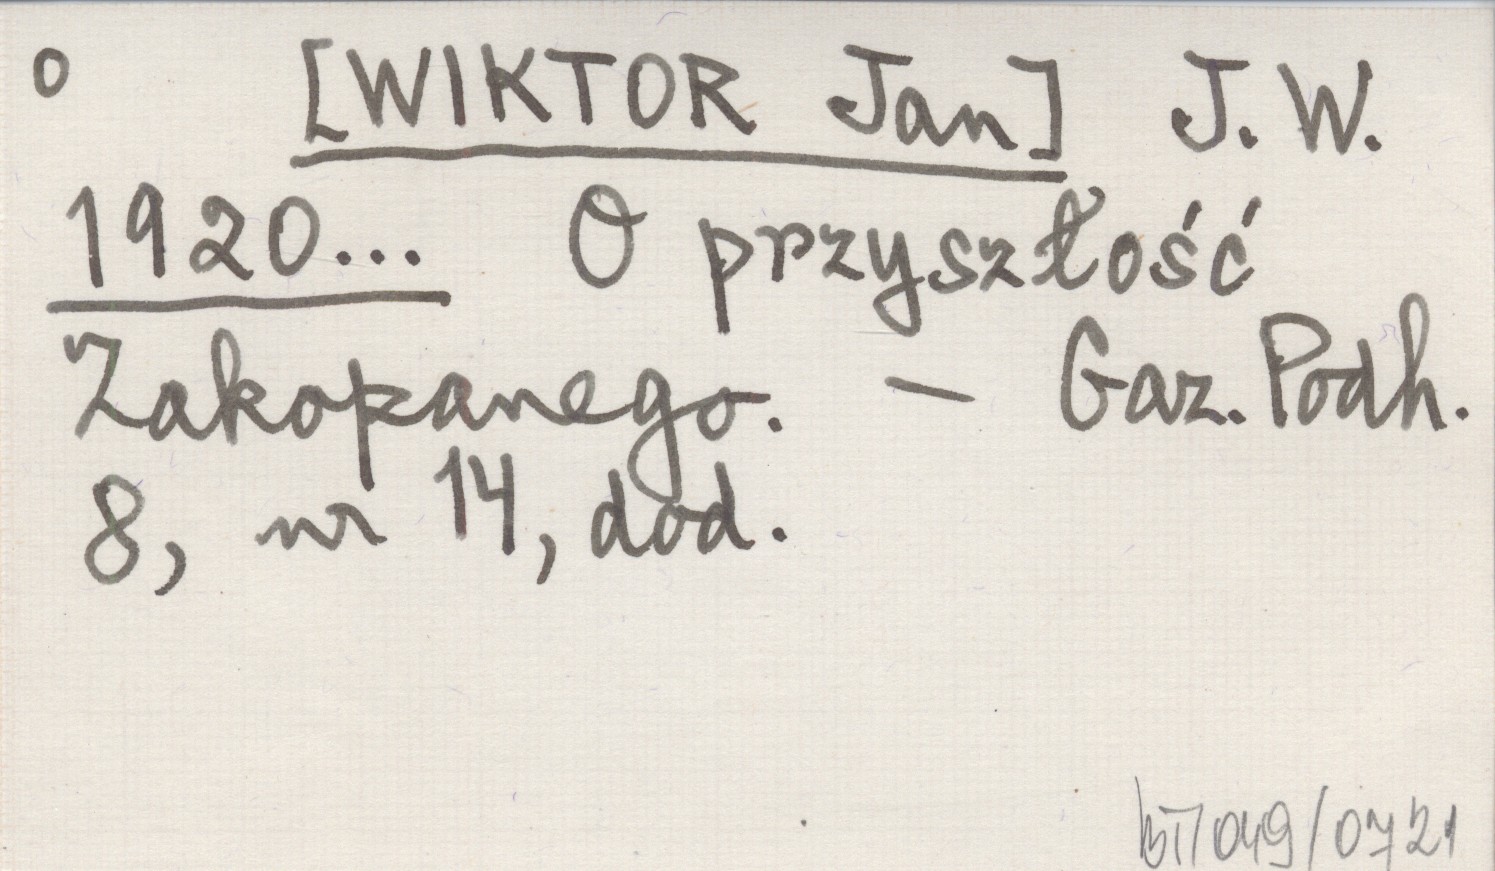 o [WIKTOR Jan] J. W.
1920... O przyszłość
Zakopanego. — Gaz. Podh.
8, nr 14, dod.
BT/049/0721